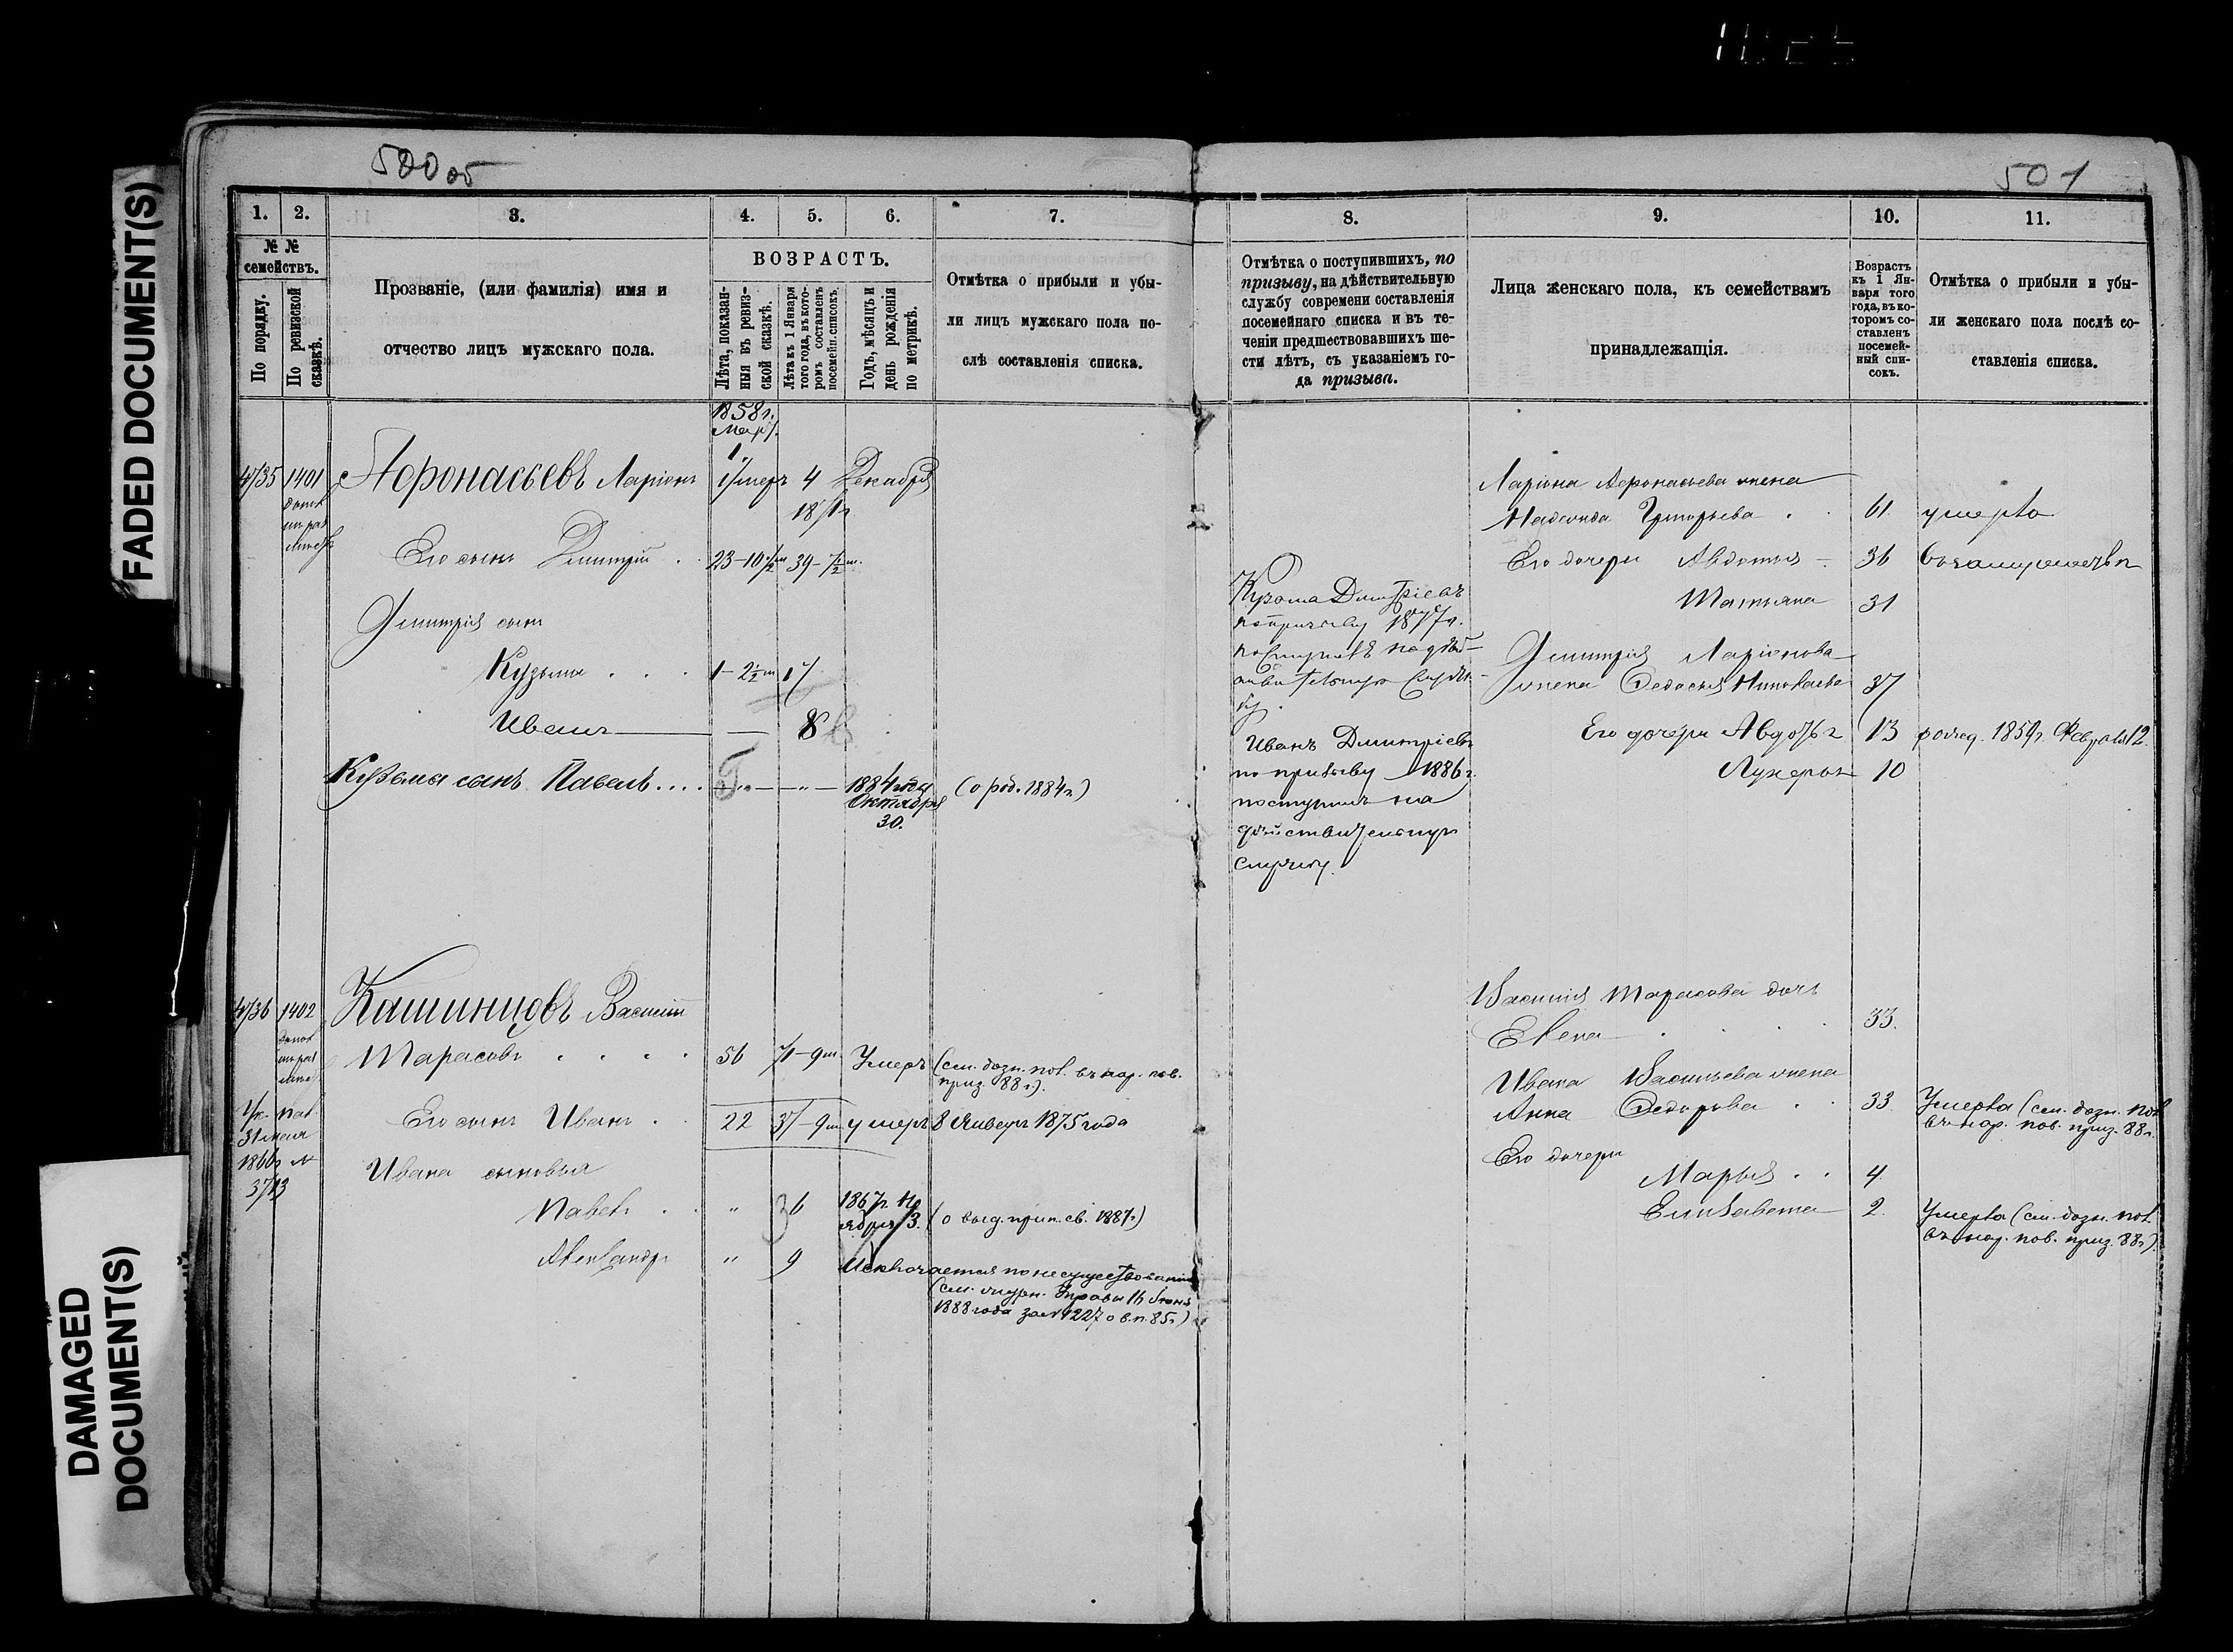 FADED DOCUMENT(S)
DAMAGED
DOCUMENT(S)
500 об
1. 2. 3. 4. 5. 6. 7.
№ №
семействъ.
По порядку.
По ревизской
сказкѣ.
Прозваніе, (или фамилія) имя и
отчество лицъ мужскаго пола.
ВОЗРАСТЪ.
Лѣта, показан-
ныя въ ревиз-
ской сказкѣ.
Лѣта къ 1 Января
того года, въ кото-
ромъ составленъ
посемейн. списокъ.
Годъ, мѣсяцъ и
день рожденія
по метрикѣ.
Отмѣтка о прибыли и убы-
ли лицъ мужскаго пола по-
слѣ составленія списка.
1858 г.
Мар.
1.
1401 Афонасьевъ Ларіонъ умеръ 4 Декабря
Его сынъ Дмитрій . . 23–10½ м 39–
Дмитрія сынъ
Кузьма . . . 1–2½ м 17
Иванъ — 8
Кузьмы сынъ Павелъ.... — „ — 1884 года (о род. 1884 г.)
Октября
30.
1402 Кашинцовъ Василій
Тарасовъ . . . . 56 71–9 м. Умеръ (см. дозн. пол. въ нар. пов.
приз. 88 г.).
Его сынъ Иванъ . . 22 37–9 м. умеръ 8 Января 1875 года
31 мая
3713
Ивана сыновья
Павелъ . . „ 6 1867 г. Но
ября 3. (о выд. прип. св. 1887 г.)
Александръ „ 9 Исключается по несуществованію
(см. журн. Управы 16 Іюня
1888 года за № 1227 о в.п. 85 г.)
501
8. 9. 10. 11.
Отмѣтка о поступившихъ, по
призыву, на дѣйствительную
службу современи составленія
посемейнаго списка и въ те-
ченіи предшествовавшихъ ше-
сти лѣтъ, съ указаніемъ го-
да призыва.
Лица женскаго пола, къ семействамъ
принадлежащія.
Возрастъ
къ 1 Ян-
варя того
года, въ ко-
торомъ со-
ставленъ
посемей-
ный спи-
сокъ.
Отмѣтка о прибыли и убы-
ли женскаго пола послѣ со-
ставленія списка.
Кузьма Дмитріевъ
по призыву 1877 г.
поступилъ на дѣй-
ствительную служ-
бу.
Иванъ Дмитріевъ
по призыву 1886 г.
поступилъ на
дѣйствительную
службу.
Ларіона Афонасьева жена
Надежда Григорьева . . 61 умерла
Его дочери Авдотья – 36 въ замужествѣ
Татьяна 31
Дмитрія Ларіонова
жена Федосья Николаева 37
Его дочери Авдотья 13 рожд. 1859 г. Февраля 12.
Лукерья 10
Василія Тарасова дочь
Елена . . . . 33.
Ивана Васильева жена
Анна Федорова . . 33 Умерла (см. дозн. пол.
въ нар. пов. приз. 88 г.
Его дочери
Марья . . 4.
Елизавета 2. Умерла (см. дозн. пол.
въ нар. пов. приз. 88 г.).